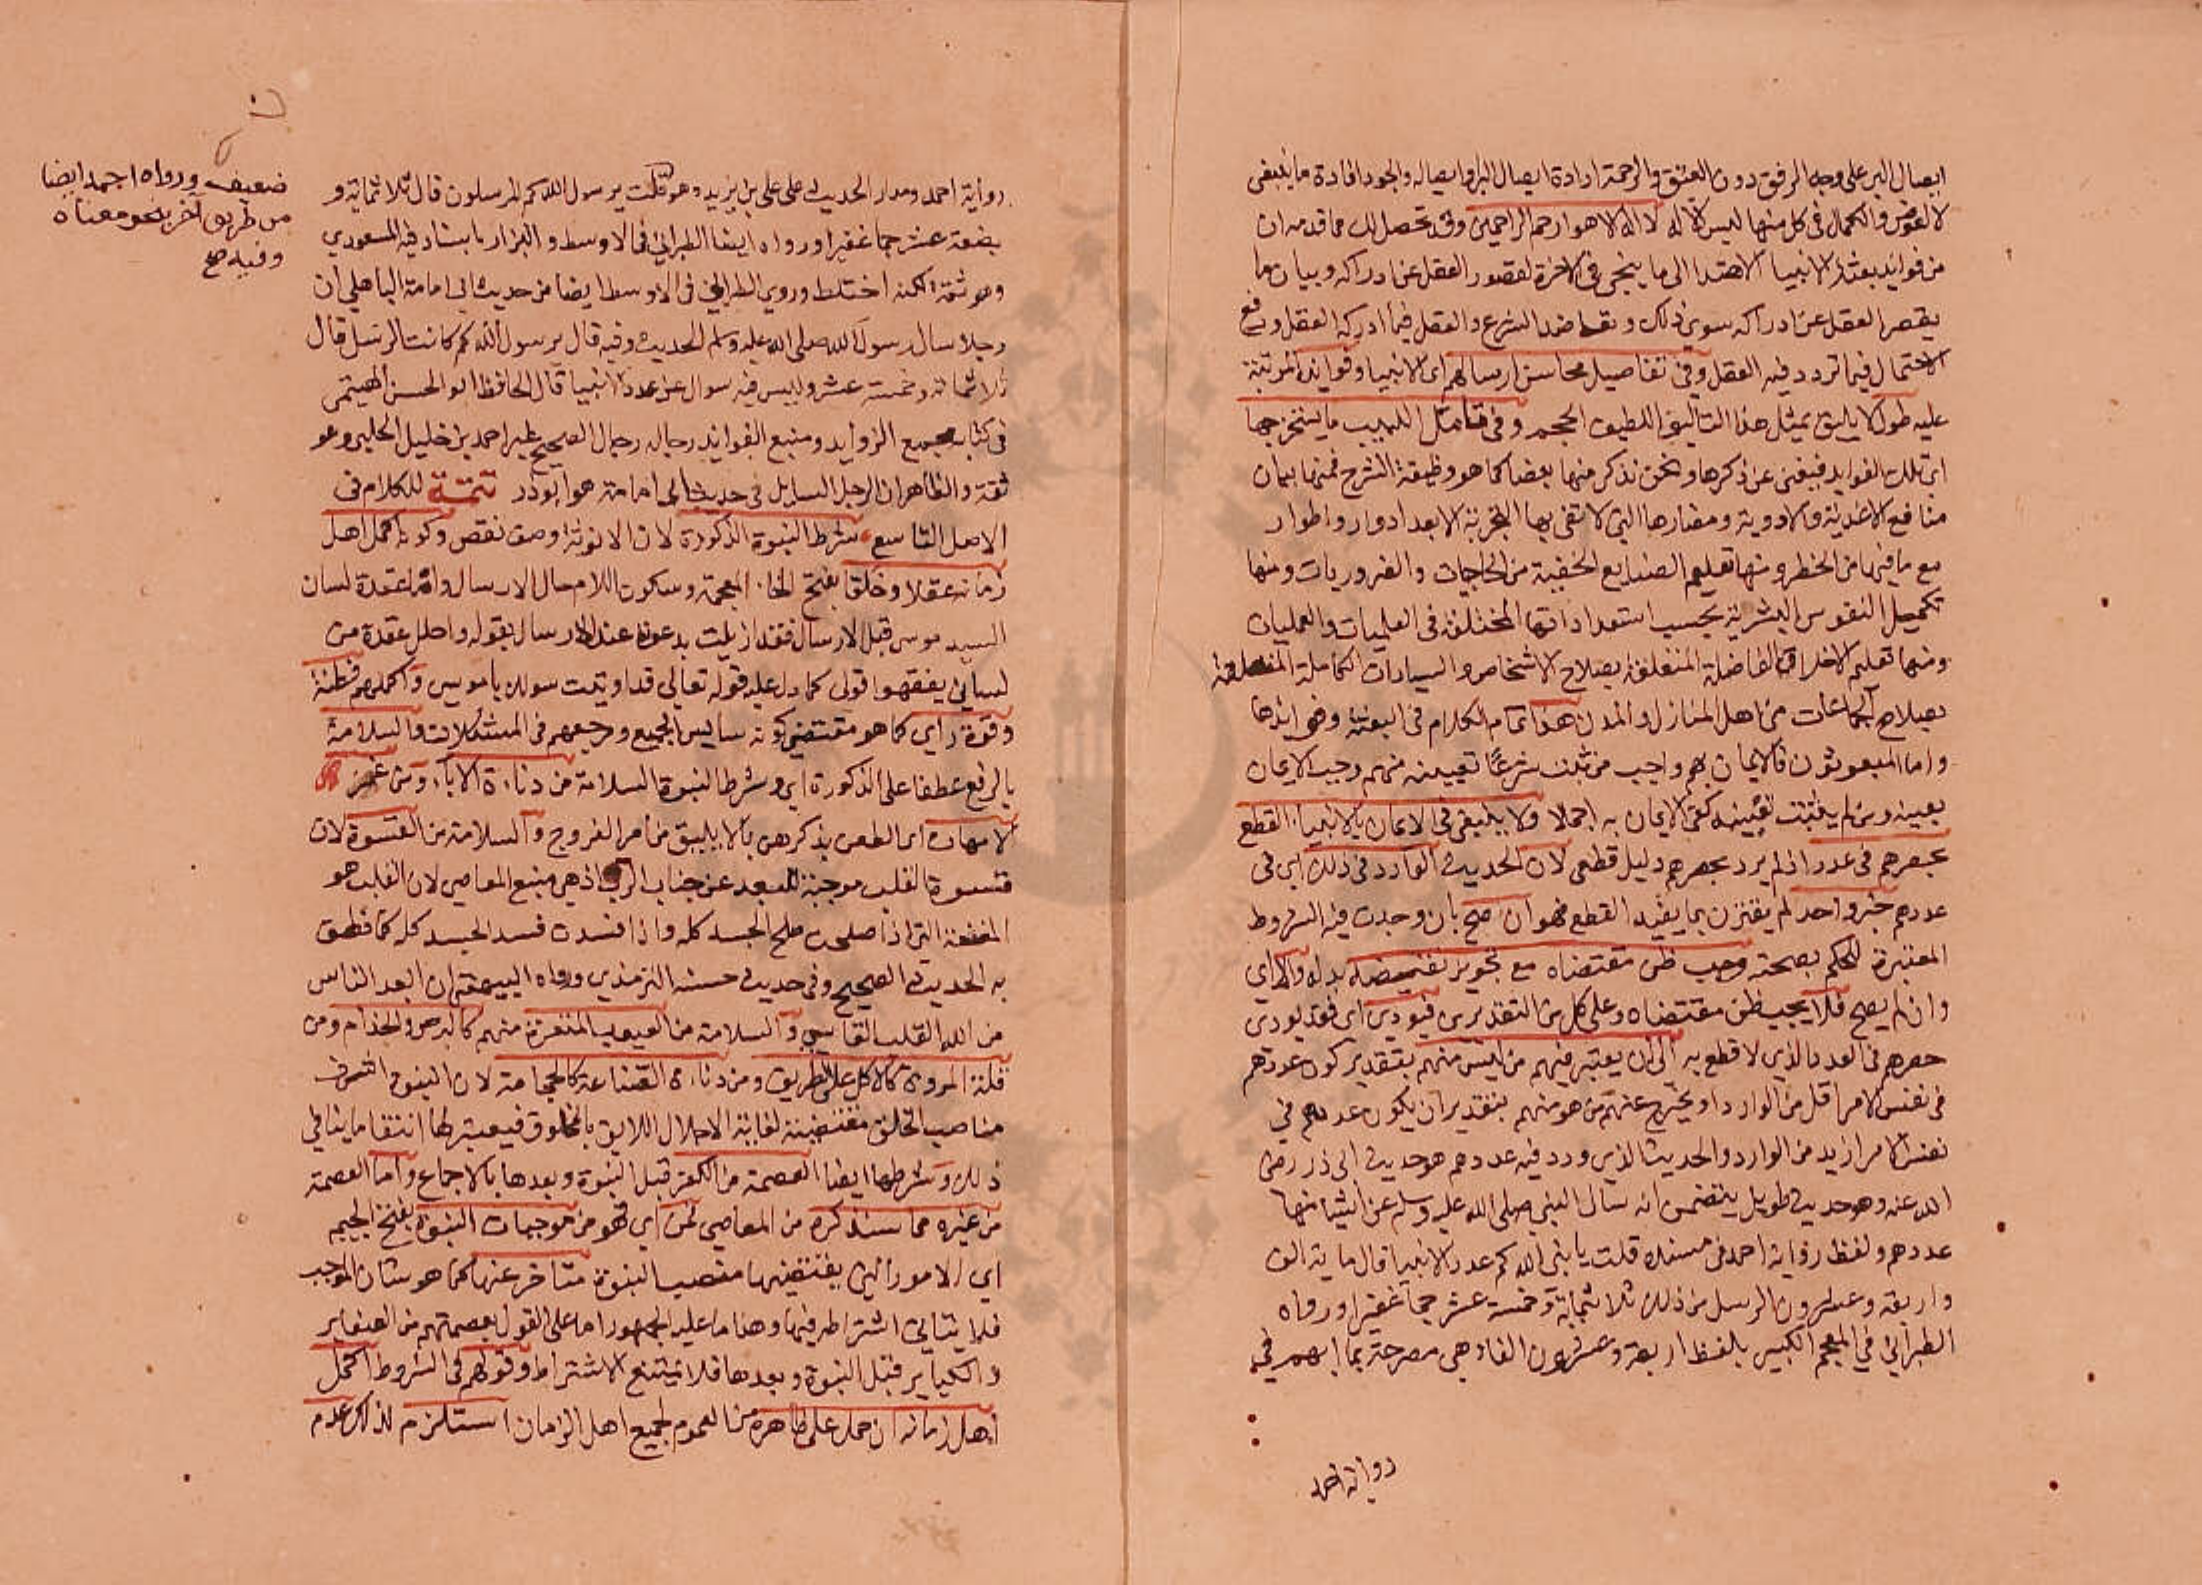 ايصال البر على وجه الرفق دون العنق والرحمة ارادة ايصال البر او ايصاله والجود افادة ما ينبغي
لا لعوض والكمال في كل منها ليس الا له لا اله الا هو ارحم الراحمين وقد تحصل لك مما قدمه ان
من فوايد بعثة الانبيا الاهتدا الى ما ينجي في الاخرة لقصور العقل عن ادراكه وبيان ما
يقصر العقل عن ادراكه سوى ذلك وتعاضد الشرع والعقل فيما ادركه العقل ورفع
الاحتمال فيما تردد فيه العقل وفي تفاصيل محاسن ارسالهم اي الانبيا وفوايده المرتبة
عليه طول لا يليق بمثل هذا التاليف اللطيف الحجم وفي تامل اللبيب ما يستخرجها
اي تلك الفوايد فيغني عن ذكرها ونحن نذكر منها بعضا كما هو وظيفة الشرح فمنها بيان
منافع الاغدية والادوية ومضارها التي لا تفي بها التجربة الا بعد ادوار واطوار
مع ما فيها من الخطر ومنها تعليم الصنايع الخفية من الحاجيات والضروريات ومنها
تكميل النفوس البشرية بحسب استعداداتها المختلفة في العلميات والعمليات
ومنها تعليم الاخلاق الفاضلة المتعلقة بصلاح الاشخاص والسياسات الكاملة المتعلقة
بصلاح الجماعات من اهل المنازل والمدن هذا تمام الكلام في البعثة وفوايدها
واما المبعوثون فالايمان بهم واجب من ثبت شرعًا تعيينه منهم وجب الايمان
بعينه ومن لم يثبت تعيينه كفى الايمان به اجمالا ولا ينبغي في الايمان بالانبيا القطع
بحصرهم في عدد اذ لم يرد بحصرهم دليل قطعي لان الحديث الوارد في ذلك اي في
عددهم خبر واحد لم يقترن بما يفيد القطع فهو ان صح بان وجدت فيه الشروط
المعتبرة للحكم بصحته وجب ظن مقتضاه مع تجويز نقيضه بدله والا اي
وان لم يصح فلا يجب ظن مقتضاه وعلى كل من التقديرين فيودي اي فقد يودي
حصرهم في العدد الذي لا قطع به الى ان يعتبر فيهم من ليس منهم بتقدير كون عددهم
في نفس الامر اقل من الوارد او يخرج عنهم من هو منهم بتقدير ان يكون عددهم في
نفس الامر ازيد من الوارد والحديث الذي ورد فيه عددهم هو حديث ابي ذر رضي
الله عنه وهو حديث طويل يتضمن انه سال النبي صلى الله عليه وسلم عن اشيا منها
عددهم ولفظ رواية احمد في مسنده قلت يا نبي الله كم عدد الانبيا قال ماية الف
واربعة وعشرون الرسل من ذلك ثلاثماية وخمسة عشر جماً غفيرا ورواه
الطبراني في المعجم الكبير بلفظ اربعة وعشرون الفا وهي مصرحة بما ابهم في
رواية احمد
رواية احمد ومدار الحديث على علي بن يزيد وهو قلت يرسول الله كم المرسلون قال ثلاثماية و
بضعة عشر جما غفيرا ورواه ايضا الطبراني في الاوسط والبزار باسناد فيه المسعودي
وهو ثقة لكنه اختلط وروي الطبراني في الاوسط ايضا من حديث ابي امامة الباهلي ان
رجلا سال رسول الله صلى الله عليه وسلم الحديث وفيه قال يرسول الله كم كانت الرسل قال
ثلاثماية وخمسة عشر وليس فيه سوال عن عدد الانبيا قال الحافظ ابو الحسن الهيتمي
في كتابه مجمع الزوايد ومنبع الفوايد رجاله رجال الصحيح غير احمد بن خليل الحلبي وهو
ثقة والظاهر ان الرجل السايل في حديث ابي امامة هو ابو ذر تتمة للكلام في
الاصل التاسع شرط النبوة الذكورة لان الانوثة وصف نقص وكونه اكمل اهل
زمانه عقلا وخلقا بفتح الخا المعجمة وسكون اللام حال الارسال واما عقدة لسان
السيد موسى قبل الارسال فقد ازيلت بدعوته عند الارسال بقوله واحلل عقدة من
لساني يفقهوا قولي كما دل عليه قوله تعالى قد اوتيت سولك ياموسى واكملهم فطنة
وقوة راي كما هو مقتضي كونه سايس الجميع ومرجعهم في المشكلات والسلامة
بالرفع عطفا على الذكورة اي وشرط النبوة السلامة من دناءة الاباء ومن غمز
الامهات اي الطعن بذكرهن بما لا يليق من امر الفروج والسلامة من القسوة لان
قسوة القلب موجبة للبعد عن جناب الرب اذ هي منبع المعاصي لان القلب هو
المضغة التي اذا صلحت صلح الجسد كله واذا فسدت فسد الجسد كله كما نطق
به الحديث الصحيح وفي حديث حسنه الترمذي ورواه البيهقي ان ابعد الناس
من الله القلب القاسي والسلامة من العيوب المنفرة منهم كالبرص والجذام ومن
قلة المروة كالاكل على الطريق ومن دناءة الصناعة كالحجامة لان النبوة اشرف
مناصب الخلق مقتضية لغاية الاجلال اللايق بالمخلوق فيعتبر لها انتفا ما ينافي
ذلك وشرطها ايضا العصمة من الكفر قبل النبوة وبعدها بالاجماع واما العصمة
من غيره مما سنذكره من المعاصي فمن اي فهو من موجبات النبوة بفتح الجيم
اي الامور التي يقتضيها منصب النبوة متاخر عنها كما هو شان الموجب
فلا ينافي اشتراطه فيها وهذا ما عليه الجمهور اما على القول بعصمتهم من الصغاير
والكباير قبل النبوة وبعدها فلا يمتنع الاشتراط وقولهم في الشروط اكمل
اهل زمانه ان حمل على ظاهره من العموم لجميع اهل الزمان استلزم لذلك عدم
ضعيف ورواه احمد ايضا
من طريق اخر بنحو معناه
وفيه صح